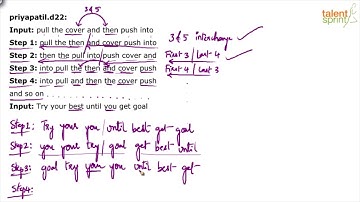 talent sprint
priyapatil.d22: 3 & 5
Input: pull the cover and then push into 3 & 5 interchange ✓
Step 1: pull the then and cover push into
Step 2: then the pull into push cover and First 3 / Last 4 ✓
Step 3: into pull the then and cover push First 4 / Last 3
Step 4: into pull and then the cover push
and so on
Input: Try your best until you get goal
Step1: Try your you / until best get goal
Step2: you your try / goal get best until
Step3: goal try your you until best get
Step4: